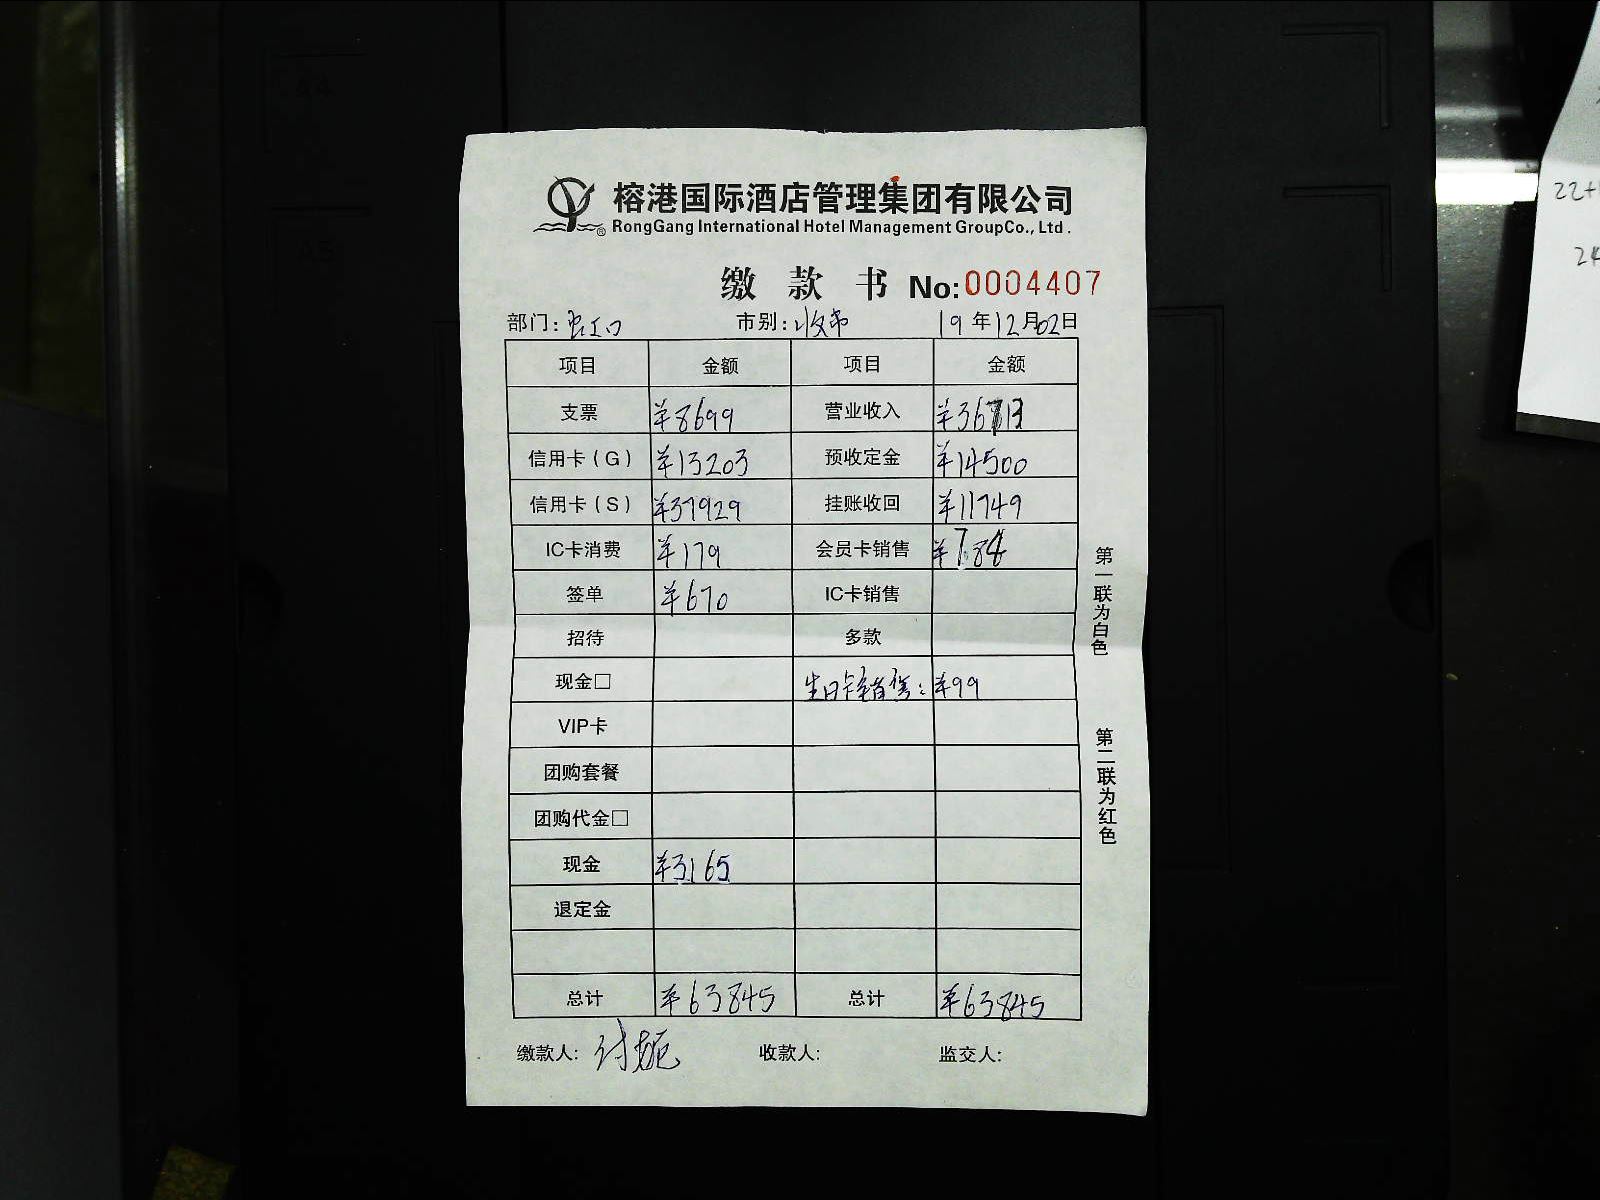 榕港国际酒店管理集团有限公司
RongGang International Hotel Management GroupCo., Ltd.
缴款书 No:0004407
部门:虹口 市别:收市 19年12月02日
项目 金额 项目 金额
支票 ¥8699 营业收入 ¥36713
信用卡(G) ¥13203 预收定金 ¥14500
信用卡(S) ¥37929 挂账收回 ¥11749
IC卡消费 ¥179 会员卡销售 ¥784
签单 ¥670 IC卡销售
招待 多款
现金□ 生日卡销售: ¥99
VIP卡
团购套餐
团购代金□
现金 ¥3165
退定金
总计 ¥63845 总计 ¥63845
缴款人: 收款人: 监交人:
第一联为白色
第二联为红色
22+
24